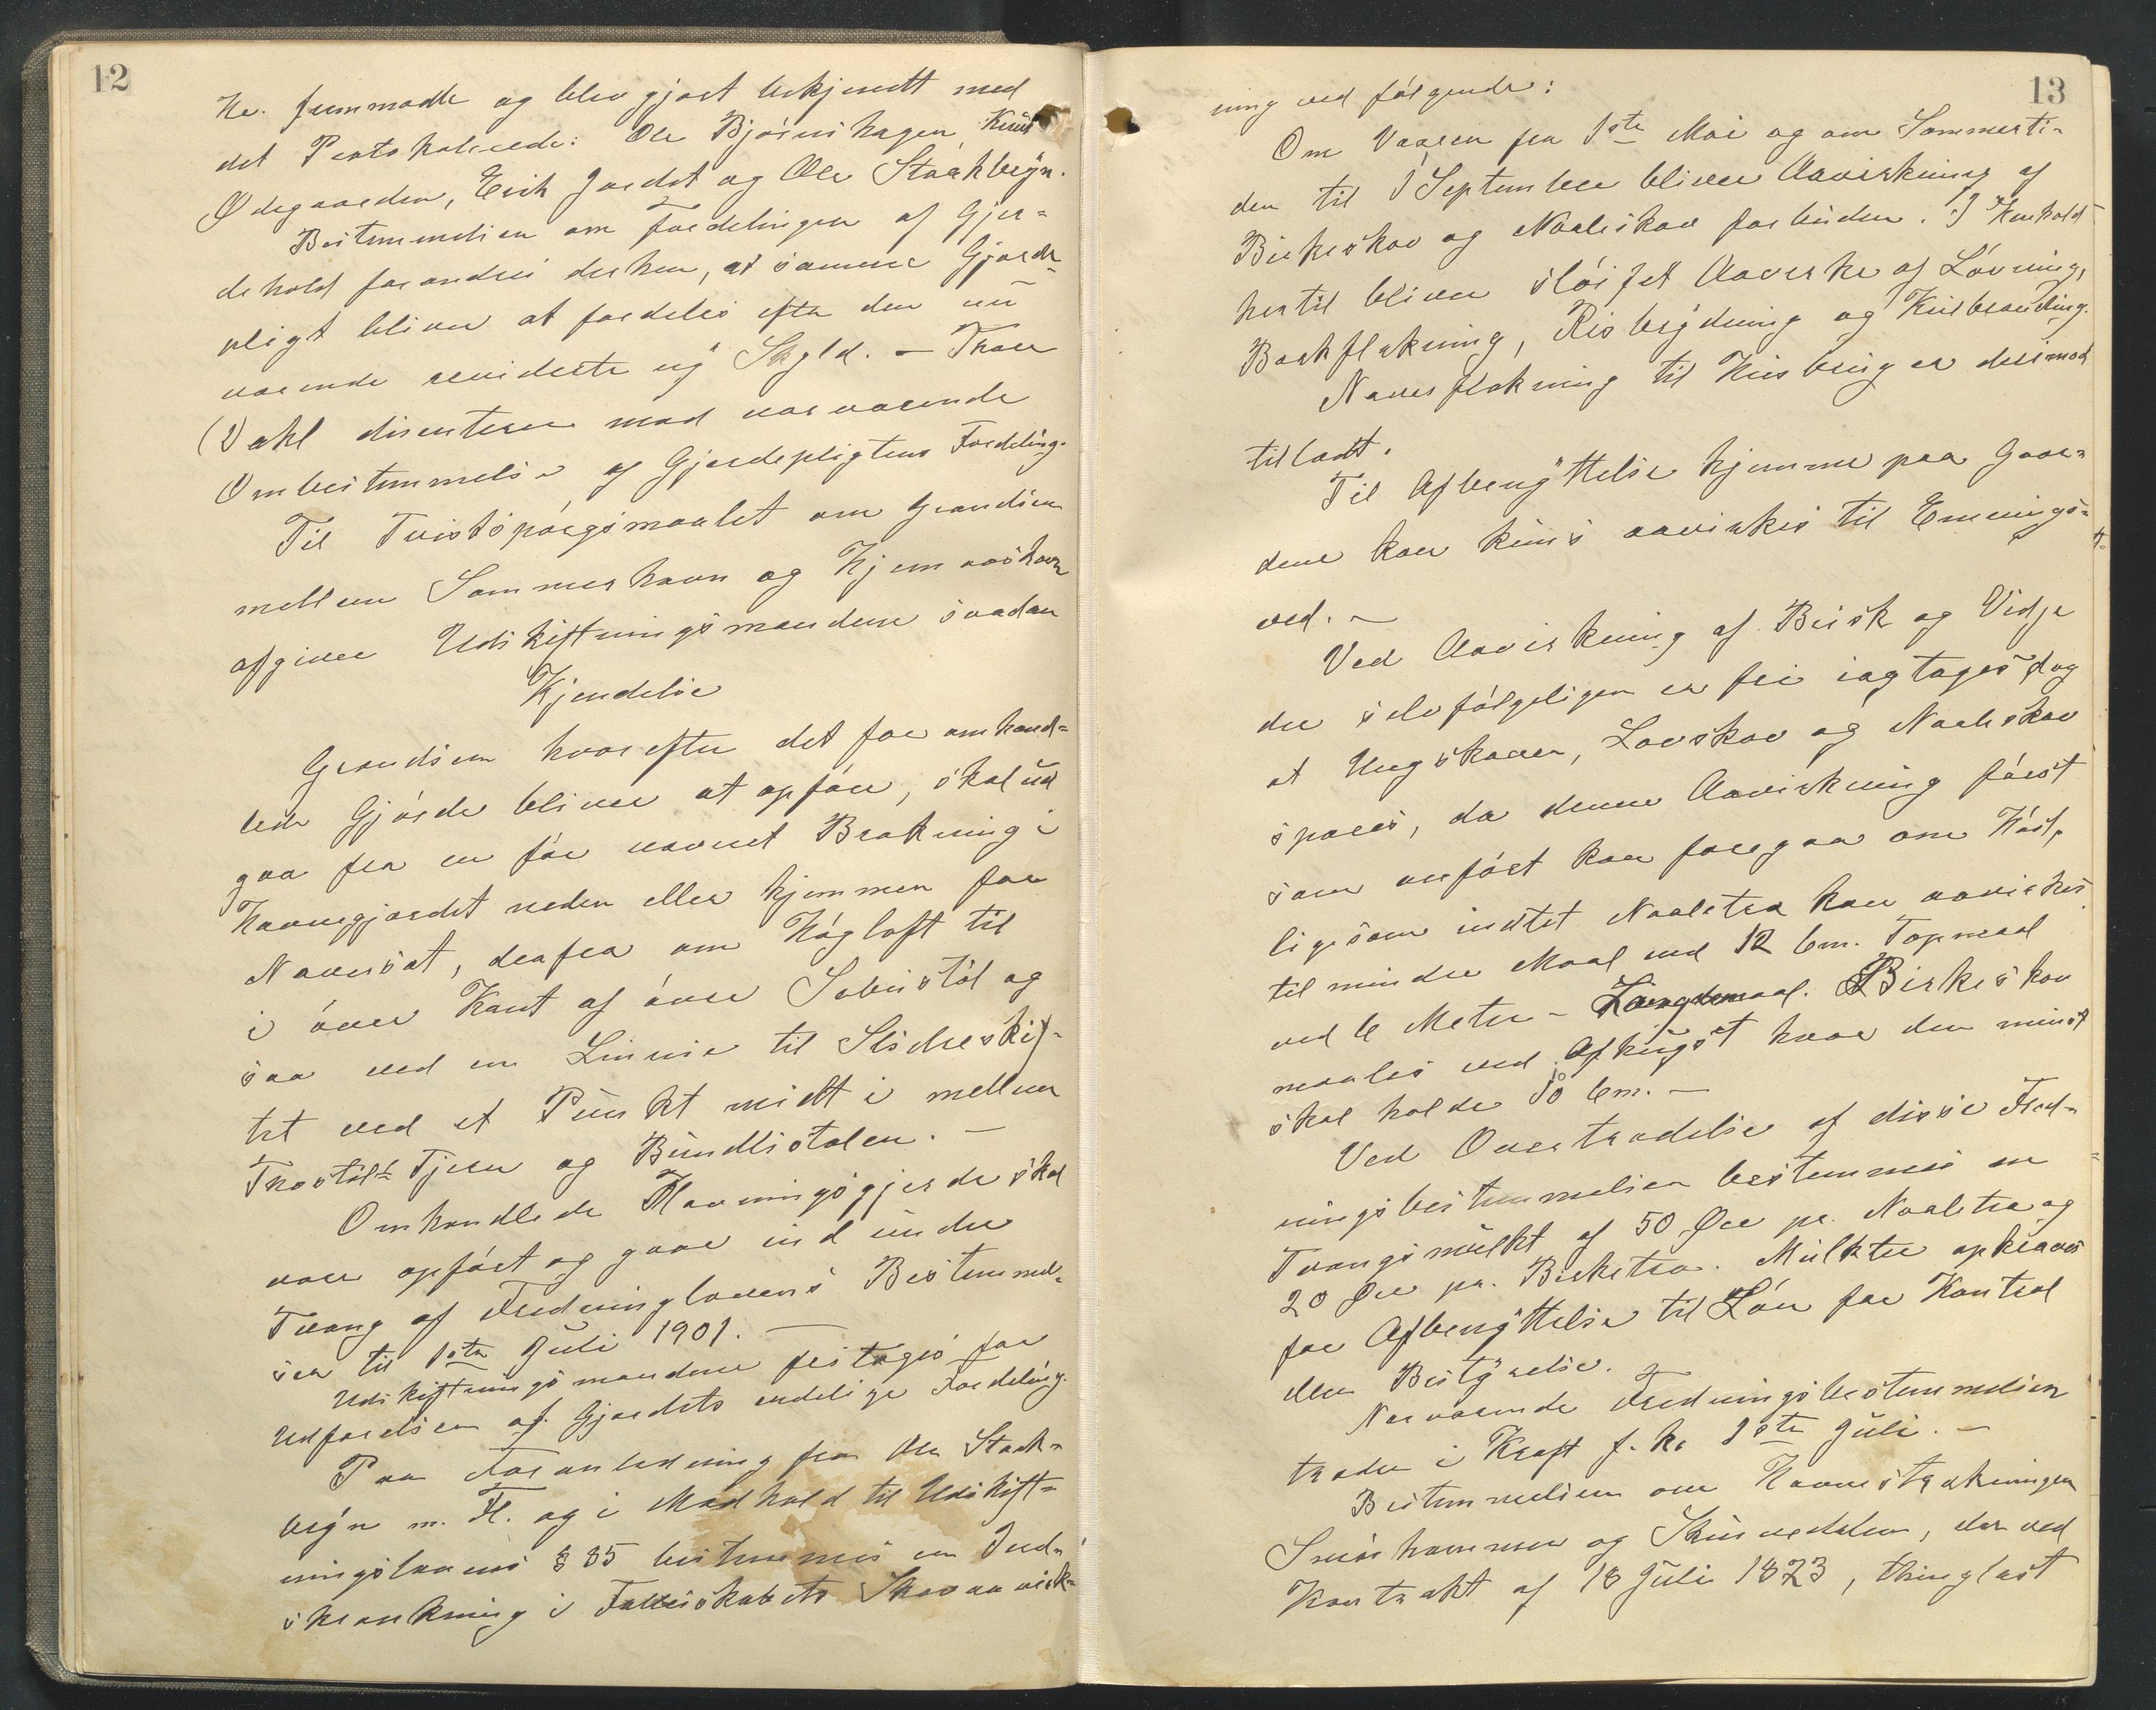 12
He. fremmødte og blev gjort bekjendt med
det Protokolerede: Ole Bjørnshagen Knut
Ødegaarden, Erik Jordet og Ole Staakbryn.
Bestemmelsen om Fordelingen af Gjer=
dehold forandres derhen, at samme Gjærde
pligt bliver at fordeles efter den nu
værende reviderte ny Skyld. — Thor
Vahl disenterer mod nærværende
Ombestemmelse af Gjerdepligtens Fordeling.
Til Tvistspørgsmaalet om Grændsen
mellem Sommerhavn og Hjemraashavn
afgiver Udskiftningsmændene saadan
Kjendelse
Grændsen hvorefter det før omhand=
lede Gjærde bliver at opføre, skal ud
gaa fra en før nævnet Brækning i
Havnegjærdet neden eller hjemmen for
Naversæt, derfra om Høgloft til
i øver Kant af øvre Sebustøl og
saa ved en Linnie til Slidreskif=
tet ved et Punkt midt i mellem
Trostøls Tjern og Bundlistølen. —
Omhandlede Havningsgjerde skal
være opført og gaar ind under
Tvang af Fredninglovens Bestemmel=
ser til 1ste Juli 1901. —
Udskiftningsmændene festages for
Udførelsen af Gjærdets endelige Fordeling.
Paa Foranledning fra Ole Staak=
bryn m. Fl. og i Medhold til Udskift=
ningslovens § 35 bestemmes en Ind=
skrænkning i Fællesskabets Skovavirk=
13
ning ved følgende:
Om Vaaren fra 1ste Mai og om Sommerti=
den til 1 September bliver Aavirkning af
Birkeskov og Naaleskov forbuden. I Henhold
hertil bliver sløifet Aavirke af Løvning,
Barkflækning, Risbrydning og Kulbrænding.
Næverflækning til Husbrug er derimod
tilladt.
Til Afbenyttelse hjemme paa Gaar=
dene kan kuns aavirkes til Emnings=
ved. —
Ved Aavirkning af Brisk og Vidje
der selvfølgeligen er fri iagtages dog
at Ungskoven, Løvskov og Naaleskov
spares, da denne Aavirkning først
som anført kan foregaa om Høst,
ligesom indtet Naaletræ kan aavirkes
til mindre Maal end 12 Cm. Topmaal
ved 6 Meter - Længdemaal. Birkeskov
maales ved Afhugst hvor den minst
skal holde 10 Cm. —
Ved Overtrædelse af disse Fred=
ningsbestemmelser bestemmes en
Tvangsmulkt af 50 Øre pr. Naaletræ og
20 Øre pr. Birketræ. Mulkter opkræves
for Afbenyttelse til Løn for Kontrol
eller Bestyrelse.
Nærværende Fredningsbestemmelser
træder i Kraft f. k. 1ste Juli. —
Bestemmelsen om Havnstrækningen
Smørhammer og Skurvedalen, der ved
Kontrakt af 18 Juli 1823, thinglæst